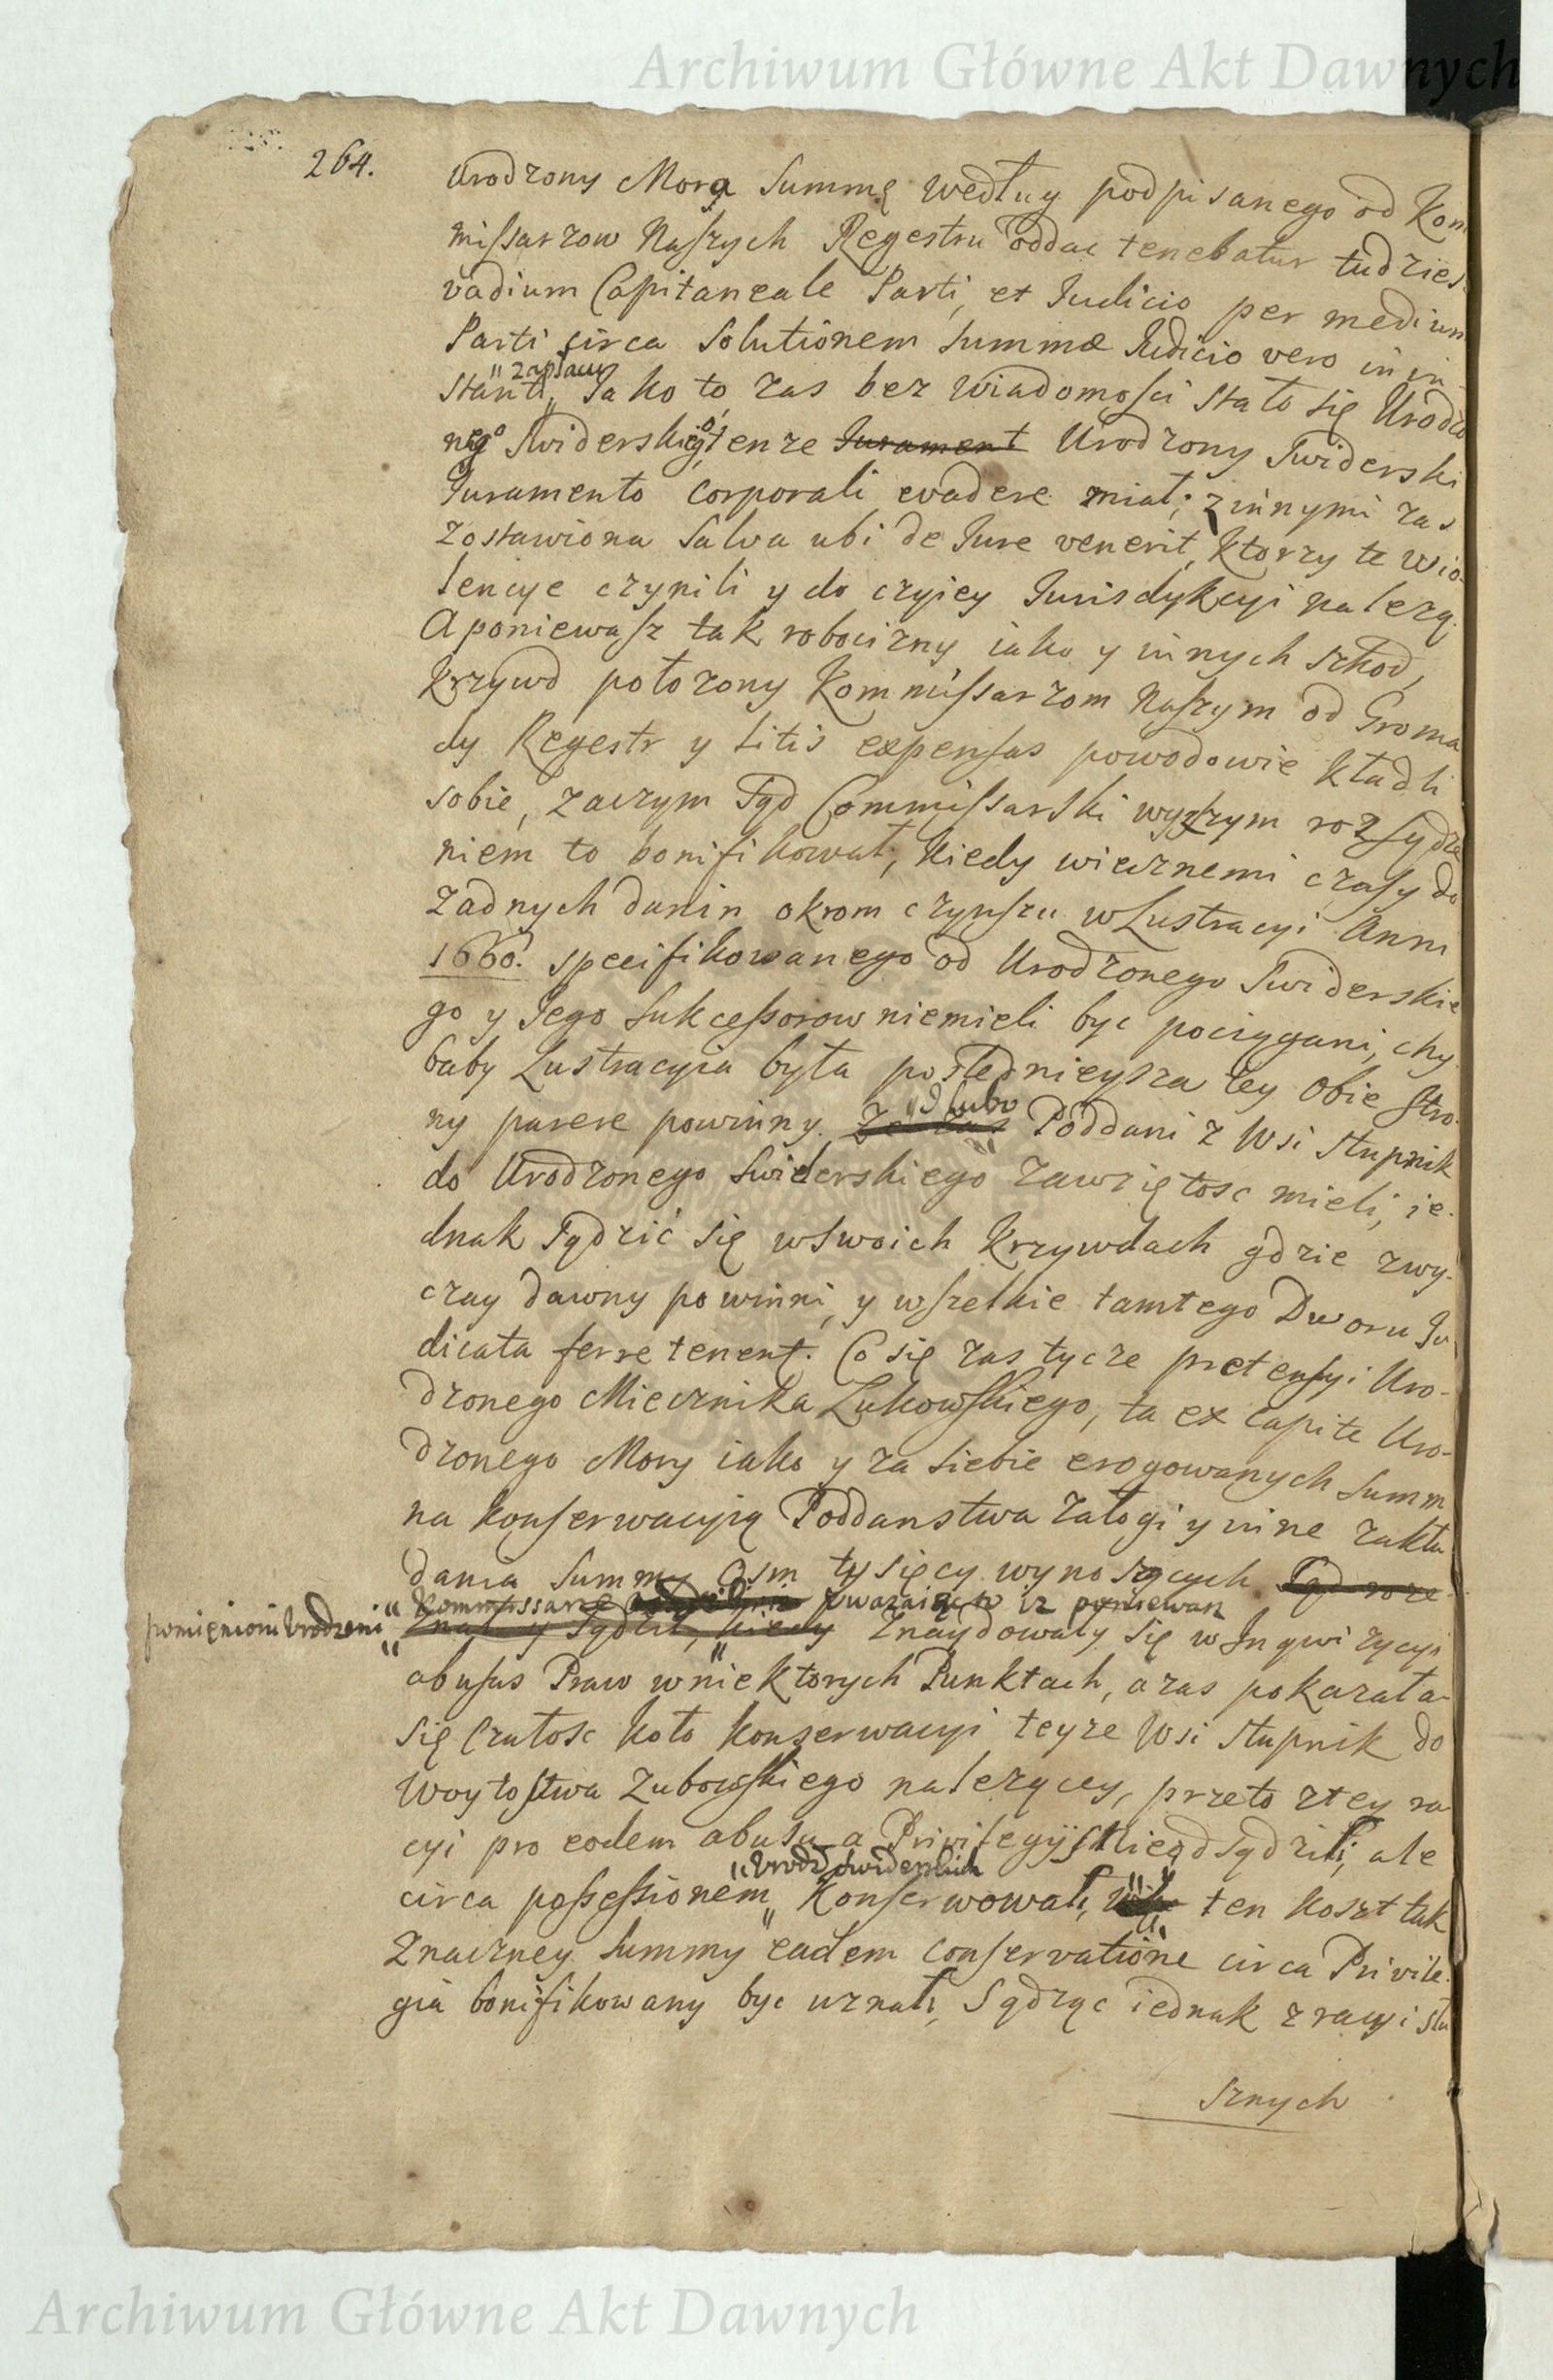 Archiwum Główne Akt Dawnych
264.
Urodzony Mora Summę według podpisanego od Kom
missarzow Naszych Regestru oddac tenebatur tudziesz
vadium Capitaneale Parti, et Iudicio per medium
Parti circa Solutionem Summæ Iudicio vero in in
" zapłaci
stanti„ Jako to zas bez wiadomosci stało się Urodzo
nego Swiderskiego, tenze Jurament Urodzony Swiderski
Iuramento corporali evadere miał; z innymi zas
zostawiona Salva ubi de Iure venerit, Ktorzy te wio-
lencye czynili y do czyiey Iurisdykcyi nalezą.
A poniewasz tak robocizny iako y innych szkod,
Krzywd połozony Kommissarzom Naszym od Groma
dy Regestr y litis expensas powodowie kładli
sobie, zaczym Sąd Commissarski wyzszym rozsądze
niem to bonifikował, kiedy wiecznemi czasy do
zadnych danin okrom czynszu w Lustracyi Anni
1660. specifikowanego od Urodzonego Swiderskie
go y Jego Sukcessorow niemieli byc pociągani, chy
baby Lustracyia była poslednieysza tey obie stro-
ny parere powinny. " A lubo
Poddani z Wsi Stupnik
do Urodzonego Swiderskiego zawziętosc mieli, ie-
dnak Sądzić się w swoich Krzywdach gdzie zwy-
czay dawny powinni, y wszelkie tamtego Dworu Iu
dicata ferre tenent. Co się zas tycze pretensyi Uro-
dzonego Miecznika Łukowskiego, ta ex capite Uro-
dzonego Mory iako y za siebie erogowanych Summ
na konserwacyią Poddanstwa załogi y inne zakła
dania Summy osm tysięcy wynoszących Sąd roze-
pomienieni Urodzeni " Kommissarze uwazaiąc iz poniewasz
znał y Sądził, kiedy znaydowały się w Inqwizycyi
abusus Praw w niektorych Punktach, a zas pokazała
się czułosc koło konserwacyi teyze Wsi Stupnik do
Woytostwa Zubowskiego nalezącey, przeto z tey ra
cyi pro eodem abusu a Privilegijs nieodsądzili, ale
" Urodz: Swiderskich
circa possessionem„ Konserwowali, ten koszt tak
znaczney Summy eadem conservatione circa Privile-
gia bonifikowany byc uznali, Sądząc iednak z racyi słu
sznych
Archiwum Główne Akt Dawnych